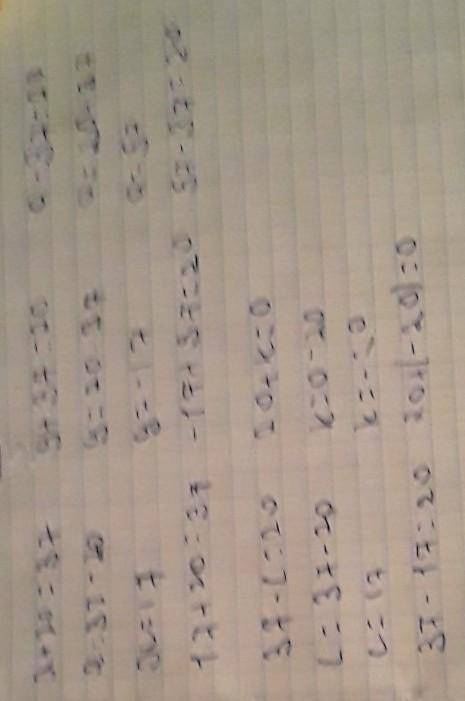 x+20=37 y+37=20
x=37-20 y=20-37
x=17 y=-17
17+20=37 -17+37=20 57-37=20
37-c=20 20+k=0
c=37-20 k=0-20
c=17 k=-20
37-17=20 20+(-20)=0